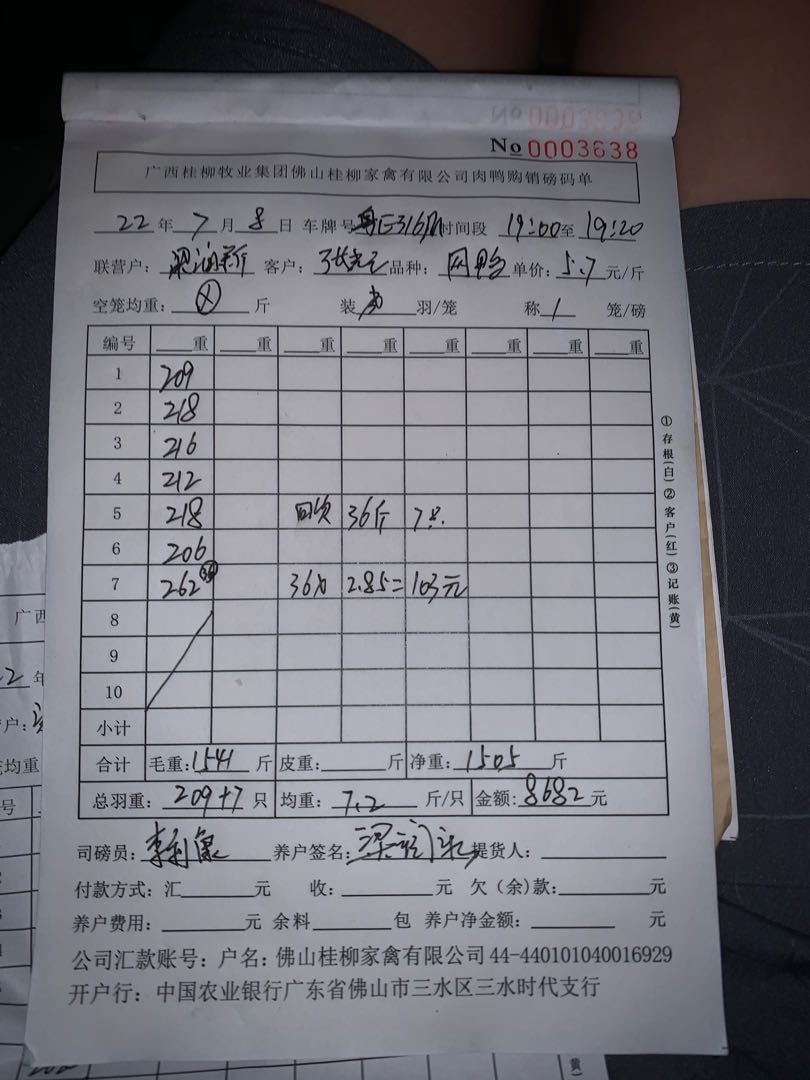 No 0003638
广西桂柳牧业集团佛山桂柳家禽有限公司肉鸭购销磅码单
22年7月8日 车牌号 时间段 19:00至19:20
联营户: 客户: 品种: 网鸭 单价: 5.7元/斤
空笼均重: 斤 装 羽/笼 称 1 笼/磅
编号 重 重 重 重 重 重 重 重
1 209
2 218
3 216
4 212
5 218 回收 36斤 7只
6 206
7 262 36 2.85=103元
8
9
10
小计
合计 毛重:1541斤 皮重: 斤 净重:1505斤
总羽重: 209+7只 均重: 7.2斤/只 金额:8682元
司磅员: 养户签名: 提货人:
付款方式:汇 元 收: 元 欠(余)款: 元
养户费用: 元 余料 包 养户净金额: 元
公司汇款账号:户名:佛山桂柳家禽有限公司 44-440101040016929
开户行:中国农业银行广东省佛山市三水区三水时代支行
①存根(白)②客户(红)③记账(黄)